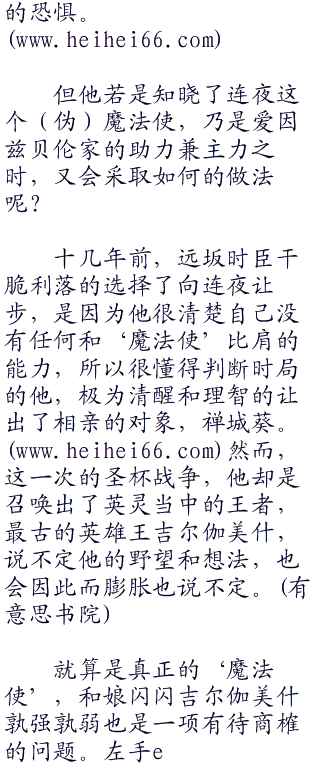 的恐惧。
(www.heihei66.com)
但他若是知晓了连夜这
个（伪）魔法使，乃是爱因
兹贝伦家的助力兼主力之
时，又会采取如何的做法
呢？
十几年前，远坂时臣干
脆利落的选择了向连夜让
步，是因为他很清楚自己没
有任何和‘魔法使’比肩的
能力，所以很懂得判断时局
的他，极为清醒和理智的让
出了相亲的对象，禅城葵。
(www.heihei66.com)然而，
这一次的圣杯战争，他却是
召唤出了英灵当中的王者，
最古的英雄王吉尔伽美什，
说不定他的野望和想法，也
会因此而膨胀也说不定。(有
意思书院)
就算是真正的‘魔法
使’，和娘闪闪吉尔伽美什
孰强孰弱也是一项有待商榷
的问题。左手e